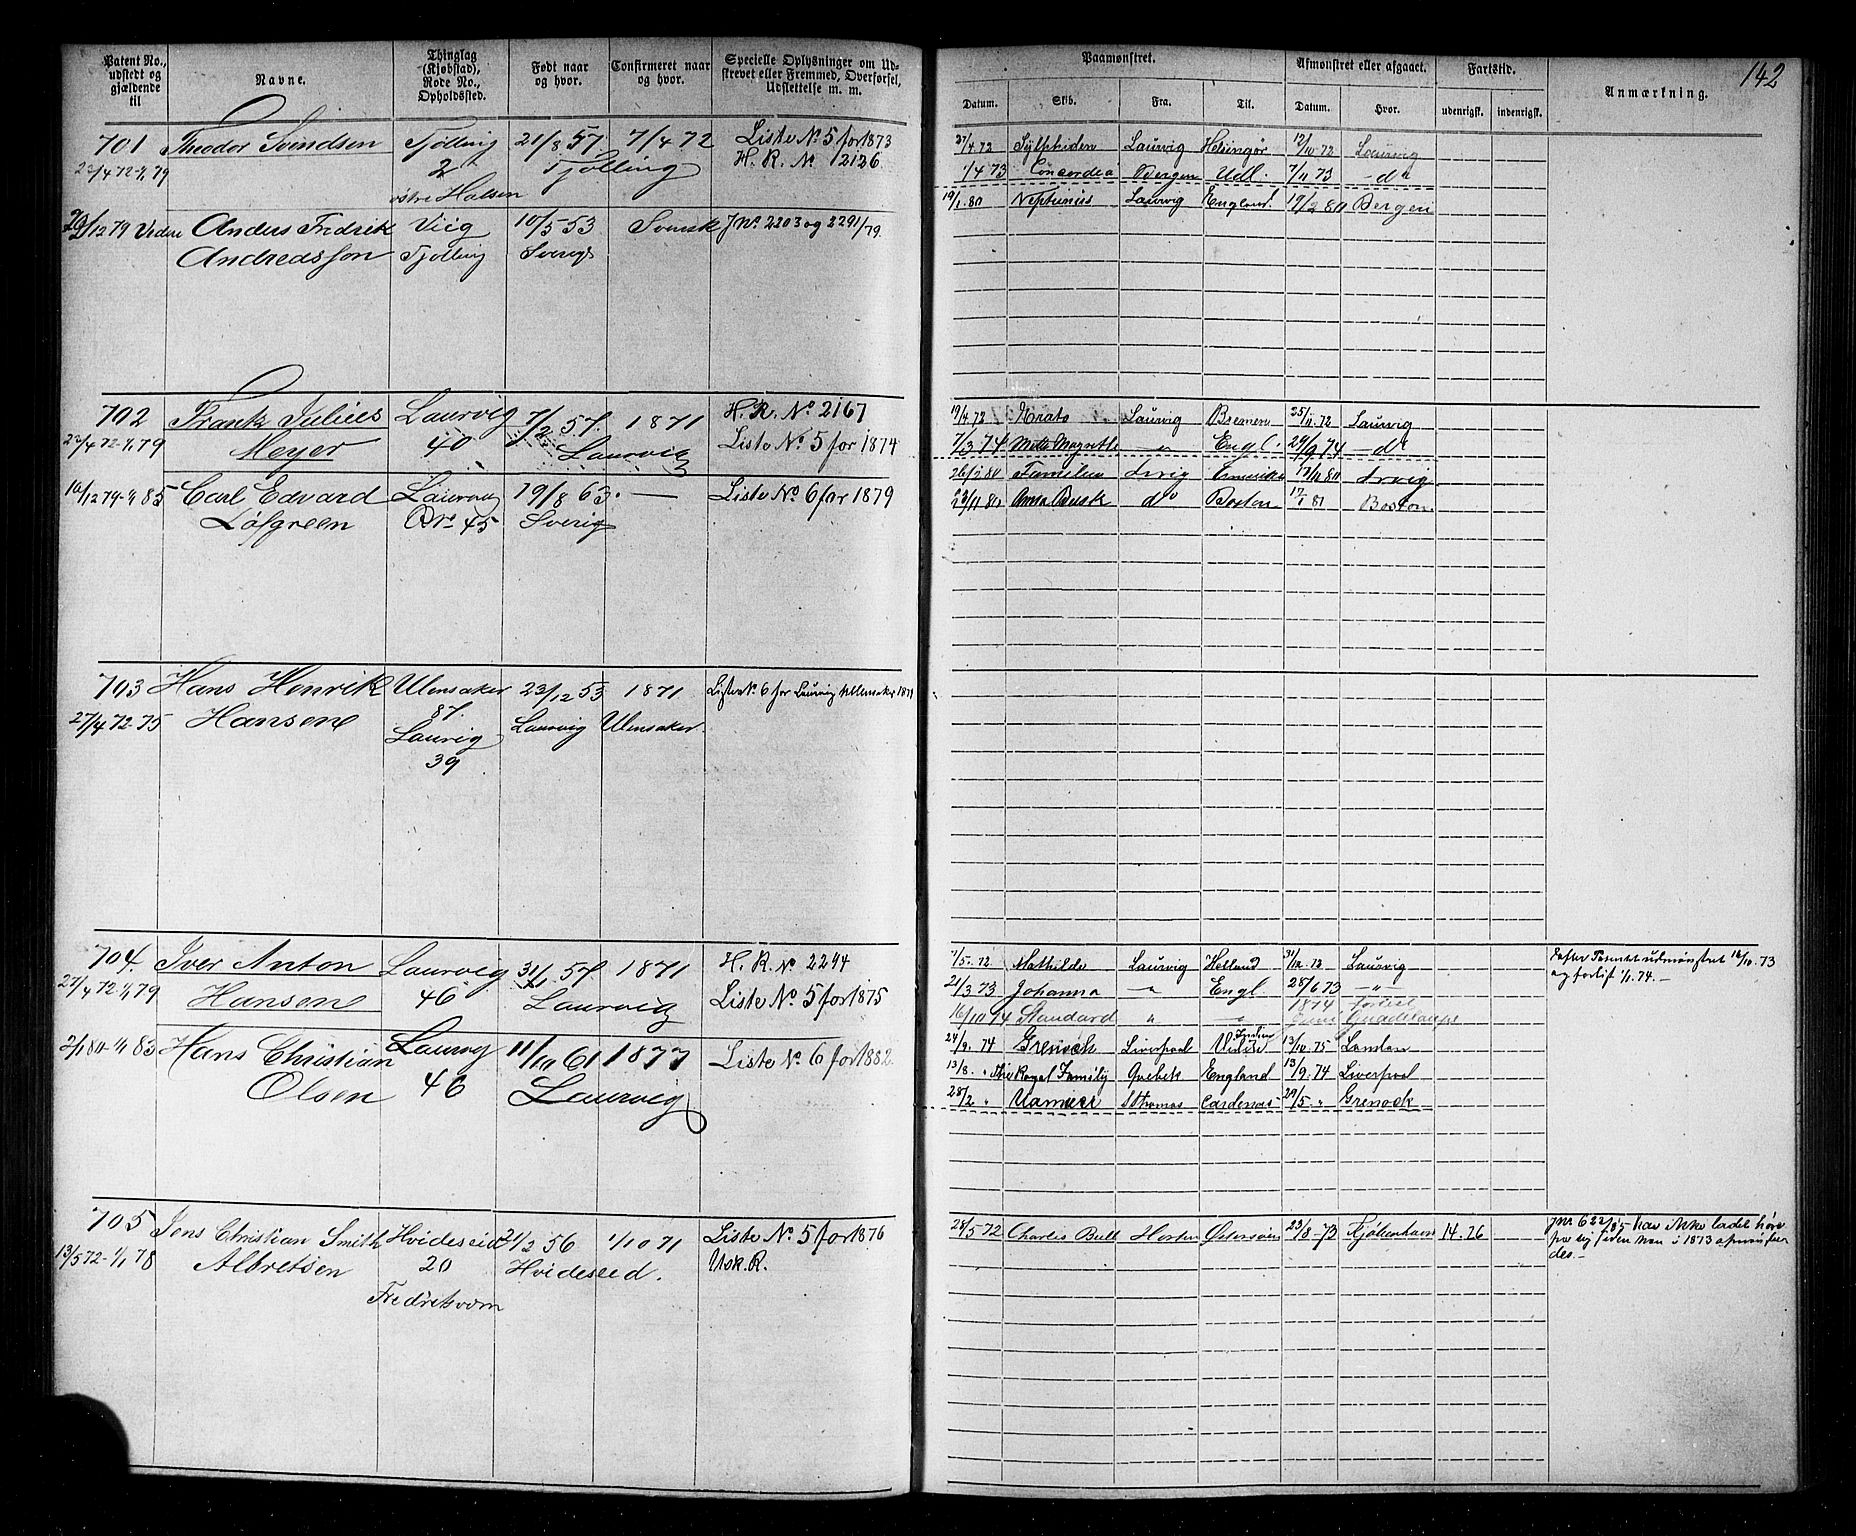 142
Patent No., udstedt og gjældende til
Navne.
Thinglag (Kjøbstad), Rode No., Opholdssted.
Født naar og hvor.
Confirmeret naar og hvor.
Specielle Oplysninger om Udskrevet eller Fremmed, Overførsel, Udslettelse m. m.
Paamønstret.
Datum. Skib. Fra. Til.
Afmønstret eller afgaaet.
Datum. Hvor.
Fartstid.
udenrigsk. indenrigsk.
Anmærkning.
701 Theodor Svendsen Tjølling 21/8 57 7/4 72 Liste No 5 for 1873
22/4 72-1/1 79 2 Tjølling H. R. No 2126
østre Halsen
Anders Fredrik Viig 10/5 53 Svensk J.No 2203 og 2291/79.
Andreassen Tjølling Sverig
27/4 72 Sylphiden Laurvig Helsingør 12/10 72 Laurvig
1/4 73 Concordia Bergen Udl. 7/11 73 - do
19/1 80 Neptunus Laurvig England 19/2 80 Bergen
702 Frank Julius Laurvig 7/2 57. 1871 H. R. No 2167
22/4 72-1/1 79 Meyer 40 Laurvig Liste No 5 for 1874
16/12 79-1/1 85 Carl Edvard Laurvig 19/8 63. — Liste No 6 for 1879
Løfgreen 45 Sverig
19/4 72 Laurvig Bremen 25/11 72 Laurvig
7/3 74 Mette Magrethe " Engl. 29/9 74 - do
26/2 80 Familien Lrvig 12/11 80 Lrvig
23/11 80 Anna Busk do Boston 17/1 81 Boston
703 Hans Henrik Ulensaker 23/12 53 1871 Liste No 6 for Laurvig
27/4 72-75 Hansen 87. Laurvig Ulensaker.
Laurvig
39
704. Iver Anton Laurvig 31/1 57 1871 H. R. No 2294
27/4 72-1/1 79 Hansen 46 Laurvig Liste No 5 for 1875
2/1 80-1/1 83 Hans Christian Laurvig 11/10 61 1877 Liste No 6 for 1882.
Olsen 46 Laurvig
7/5. 72 Mathilde Laurvig Holland 31/12. 72 Laurvig
21/3 73 Johanna " Engl 28/6 73 - " -
16/10 74 Standard " " 1874 Guadeloupe
24/9. 74 Grenock Liverpool 13/10. 75 London
13/8. " The Royal Family Qvebek England 13/9. 74 Liverpool
28/2 " S Thomas Cardenas 29/5. " Grenock
og forlist 1/11. 74. -
705 Jens Christian Smith Hvideseid 21/2 56 1/10 71 Liste No 5 for 1876
13/5 72-1/1 78 Albretsen 20 Hvideseed. Usk. R.
Fredriksværn
28/5 72 Charles Bull Horten Østersøen 23/8-73 Kjøbenhavn 14.26
J.Nr. 622/85 har ikke ladet høre
fra sig siden han i 1873
des. -